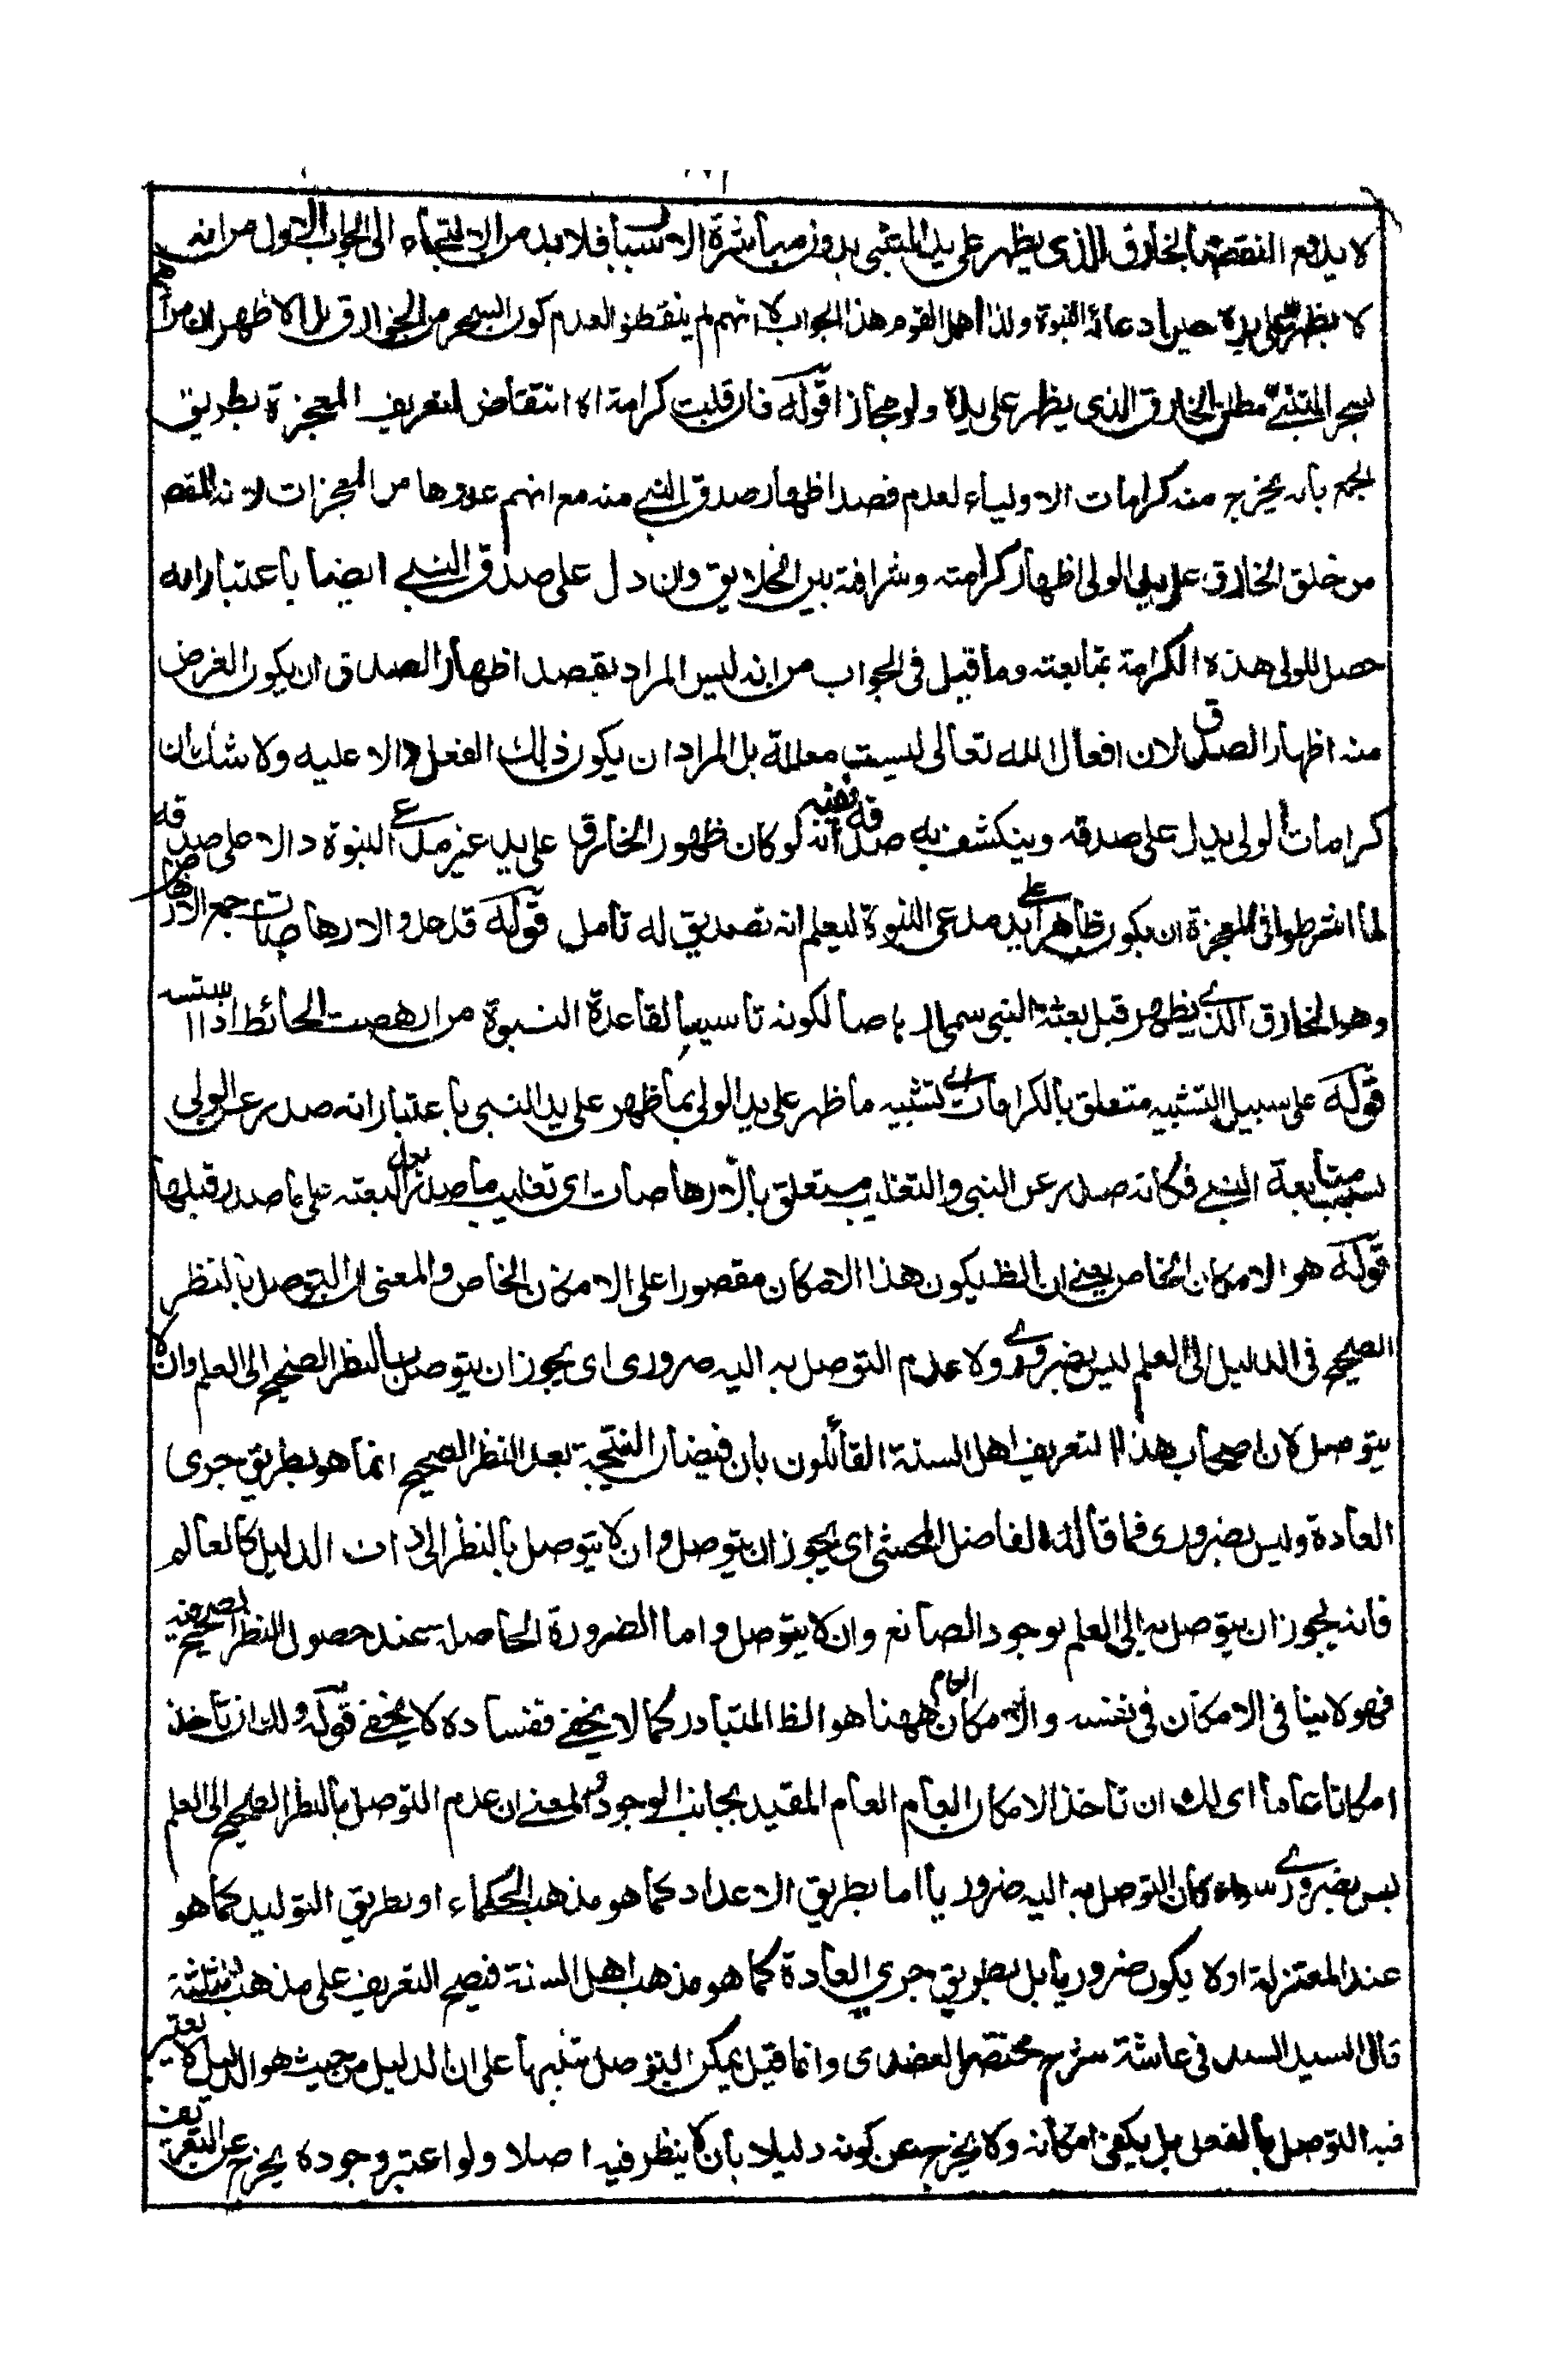 لا يدفع النقض بالخارق الذي يظهر على يد المتنبي بدون مباشرة الاسباب فلا بد من الالتجاء الى الجواب الاول من انه
لا يظهر على يده حين ادعائه النبوة ولذا اهمل القوم هذا الجواب لا انهم لم يتفطنوا لعدم كون السحر من الخوارق بل الاظهر ان مرادهم
بسحر المتنبي مطلق الخارق الذي يظهر على يده ولو مجازا قوله فان قلت كرامة اه انتقاض لتعريف المعجزة بطريق
الجمع بانه يخرج منه كرامات الاولياء لعدم قصد اظهار صدق النبي منه مع انهم عدوها من المعجزات لانه المقص
من خلق الخارق على يد الولي اظهار كرامته وشرافته بين الخلايق وان دل على صدق النبي ايضا باعتبار انه
حصل للولي هذه الكرامة بمتابعته وما قيل في الجواب من انه ليس المراد بقصد اظهار الصدق ان يكون الغرض
منه اظهار الصدق لان افعال الله تعالى ليست معللة بل المراد ان يكون ذلك الفعل دالا عليه ولا شك ان
كرامات الولي يدل على صدقه وينكشف به صدقه ففيه انه لو كان ظهور الخارق على يد غير مدعي النبوة دالا على صدقه
لما اشترطوا في المعجزة ان يكون ظاهرا على يد مدعي النبوة ليعلم انه تصديق له تامل قوله قد حدوا الارهاصات جمع الارهاص
وهو الخارق الذي يظهر قبل بعثة النبي سمي ارهاصا لكونه تاسيسا لقاعدة النبوة من ارهصت الحائط اذا اسسته
قوله على سبيل التشبيه متعلق بالكرامات اي تشبيه ما ظهر على يد الولي بما ظهر على يد النبي باعتبار انه صدر عن الولي
بسبب متابعة النبي فكانه صدر عن النبي والتغليب متعلق بالارهاصات اي تغليب ما صدر بعد البعثة على ما صدر قبلها
قوله هو الامكان الخاص يعني ان الظ يكون هذا الامكان مقصورا على الامكان الخاص والمعنى ان التوصل بالنظر
الصحيح في الدليل الى العلم ليس بضروري ولا عدم التوصل به اليه ضروري اي يجوز ان يتوصل بالنظر الصحيح الى العلم وان لا
يتوصل لان اصحاب هذا التعريف اهل السنة القائلون بان فيضان النتيجة بعد النظر الصحيح انما هو بطريق جري
العادة وليس بضروري فما قاله الفاضل المحشي اي يجوز ان يتوصل وان لا يتوصل بالنظر الى ذات الدليل كالعالم
فانه يجوز ان يتوصل به الى العلم بوجود الصانع وان لا يتوصل واما الضرورة الحاصلة عند حصول النظر الصحيح فيه
فهو لا ينافي الامكان في نفسه والامكان العام ههنا هو الظ المتبادر كما لا يخفى ففساده لا يخفى قوله ولك ان تاخذ
امكانا عاما اي لك ان تاخذ الامكان العام العام المقيد بجانب الوجود والمعنى ان عدم التوصل بالنظر الصحيح الى العلم
ليس بضروري سواء كان التوصل به اليه ضروريا اما بطريق الاعداد كما هو مذهب الحكماء او بطريق التوليد كما هو
عند المعتزلة او لا يكون ضروريا بل بطريق جري العادة كما هو مذهب اهل السنة فيصح التعريف على مذهب الثلثة
قال السيد السند في حاشية شرح مختصر العضدي وانما قيل يمكن التوصل تنبيها على ان الدليل من حيث هو الدليل لا يعتبر
فيه التوصل بالفعل بل يكفي امكانه ولا يخرج عن كونه دليلا بان لا ينظر فيه اصلا ولو اعتبر وجوده يخرج عن التعريف